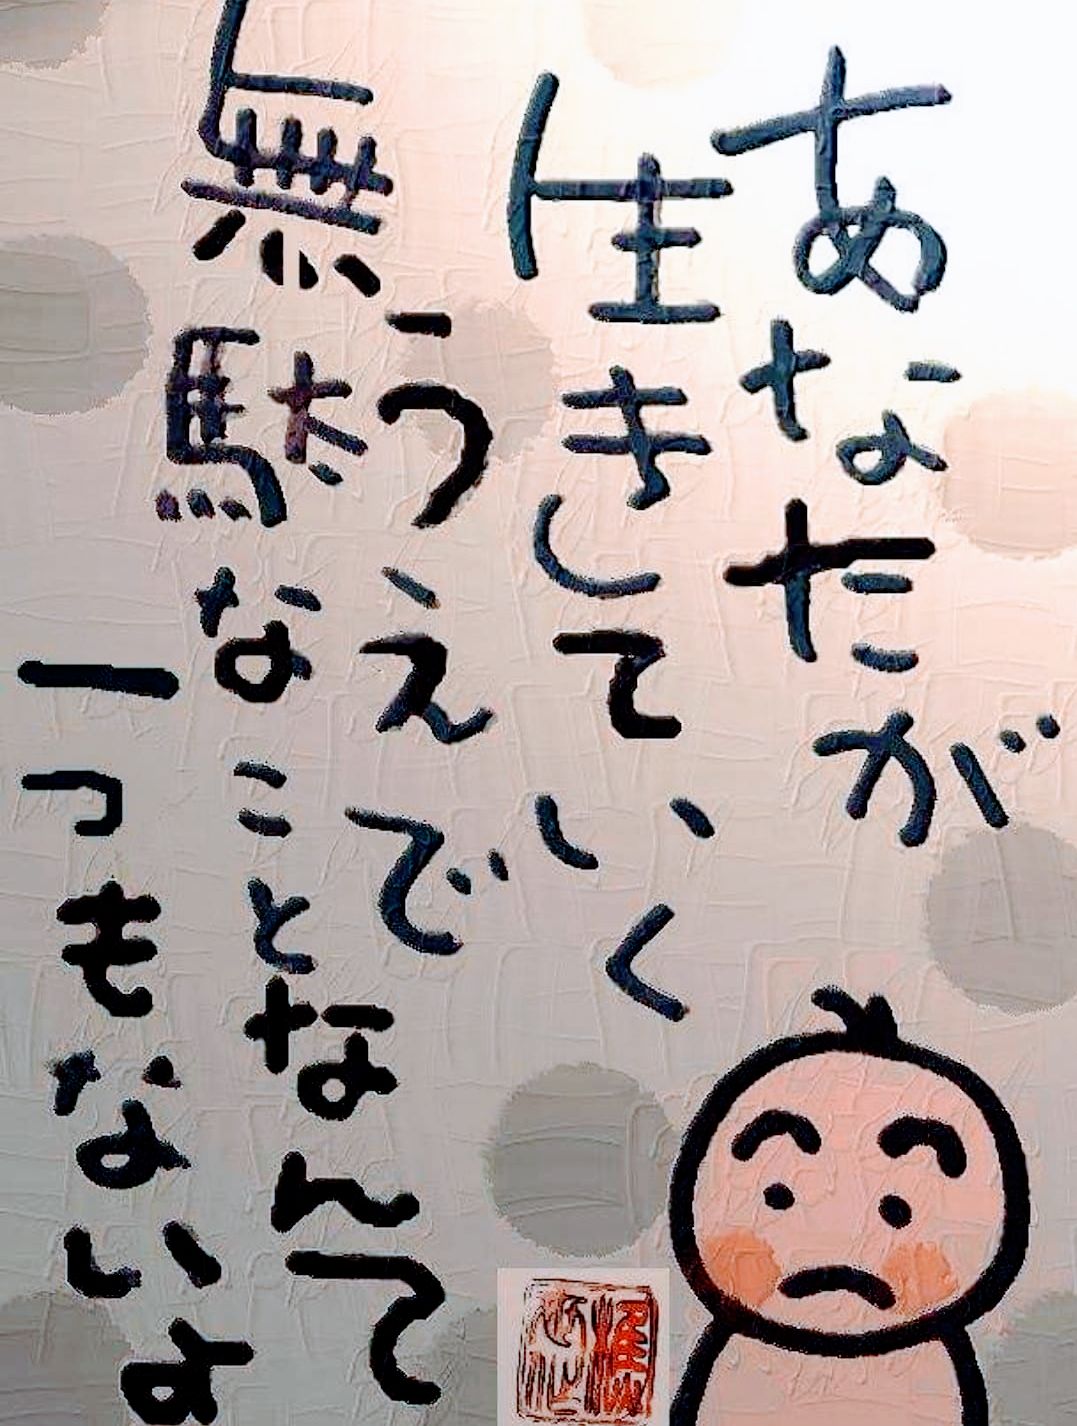 あなたが
生きていく
うえで
無駄なことなんて
一つもないよ